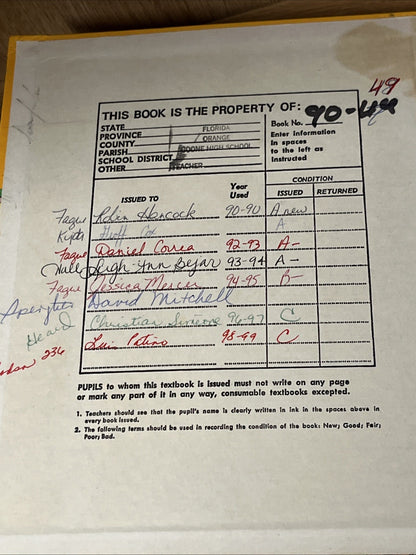 49
THIS BOOK IS THE PROPERTY OF:
STATE FLORIDA
PROVINCE
COUNTY ORANGE
PARISH BOONE HIGH SCHOOL
SCHOOL DISTRICT
OTHER TEACHER
Book No. 90-44
Enter information
in spaces
to the left as
instructed
ISSUED TO
Year
Used
CONDITION
ISSUED RETURNED
Fague Robin Hancock 90-90 A new
Geoff Cox A
Fague Daniel Correa 92-93 A-
Hall Leigh Ann Bejar 93-94 A-
Fague Jessica Mercer 94-95 B-
David Mitchell
Heard Christian Simeone 96-97 C
236 Luis Patino 98-99 C
PUPILS to whom this textbook is issued must not write on any page
or mark any part of it in any way, consumable textbooks excepted.
1. Teachers should see that the pupil's name is clearly written in ink in the spaces above in
every book issued.
2. The following terms should be used in recording the condition of the book: New; Good; Fair;
Poor; Bad.